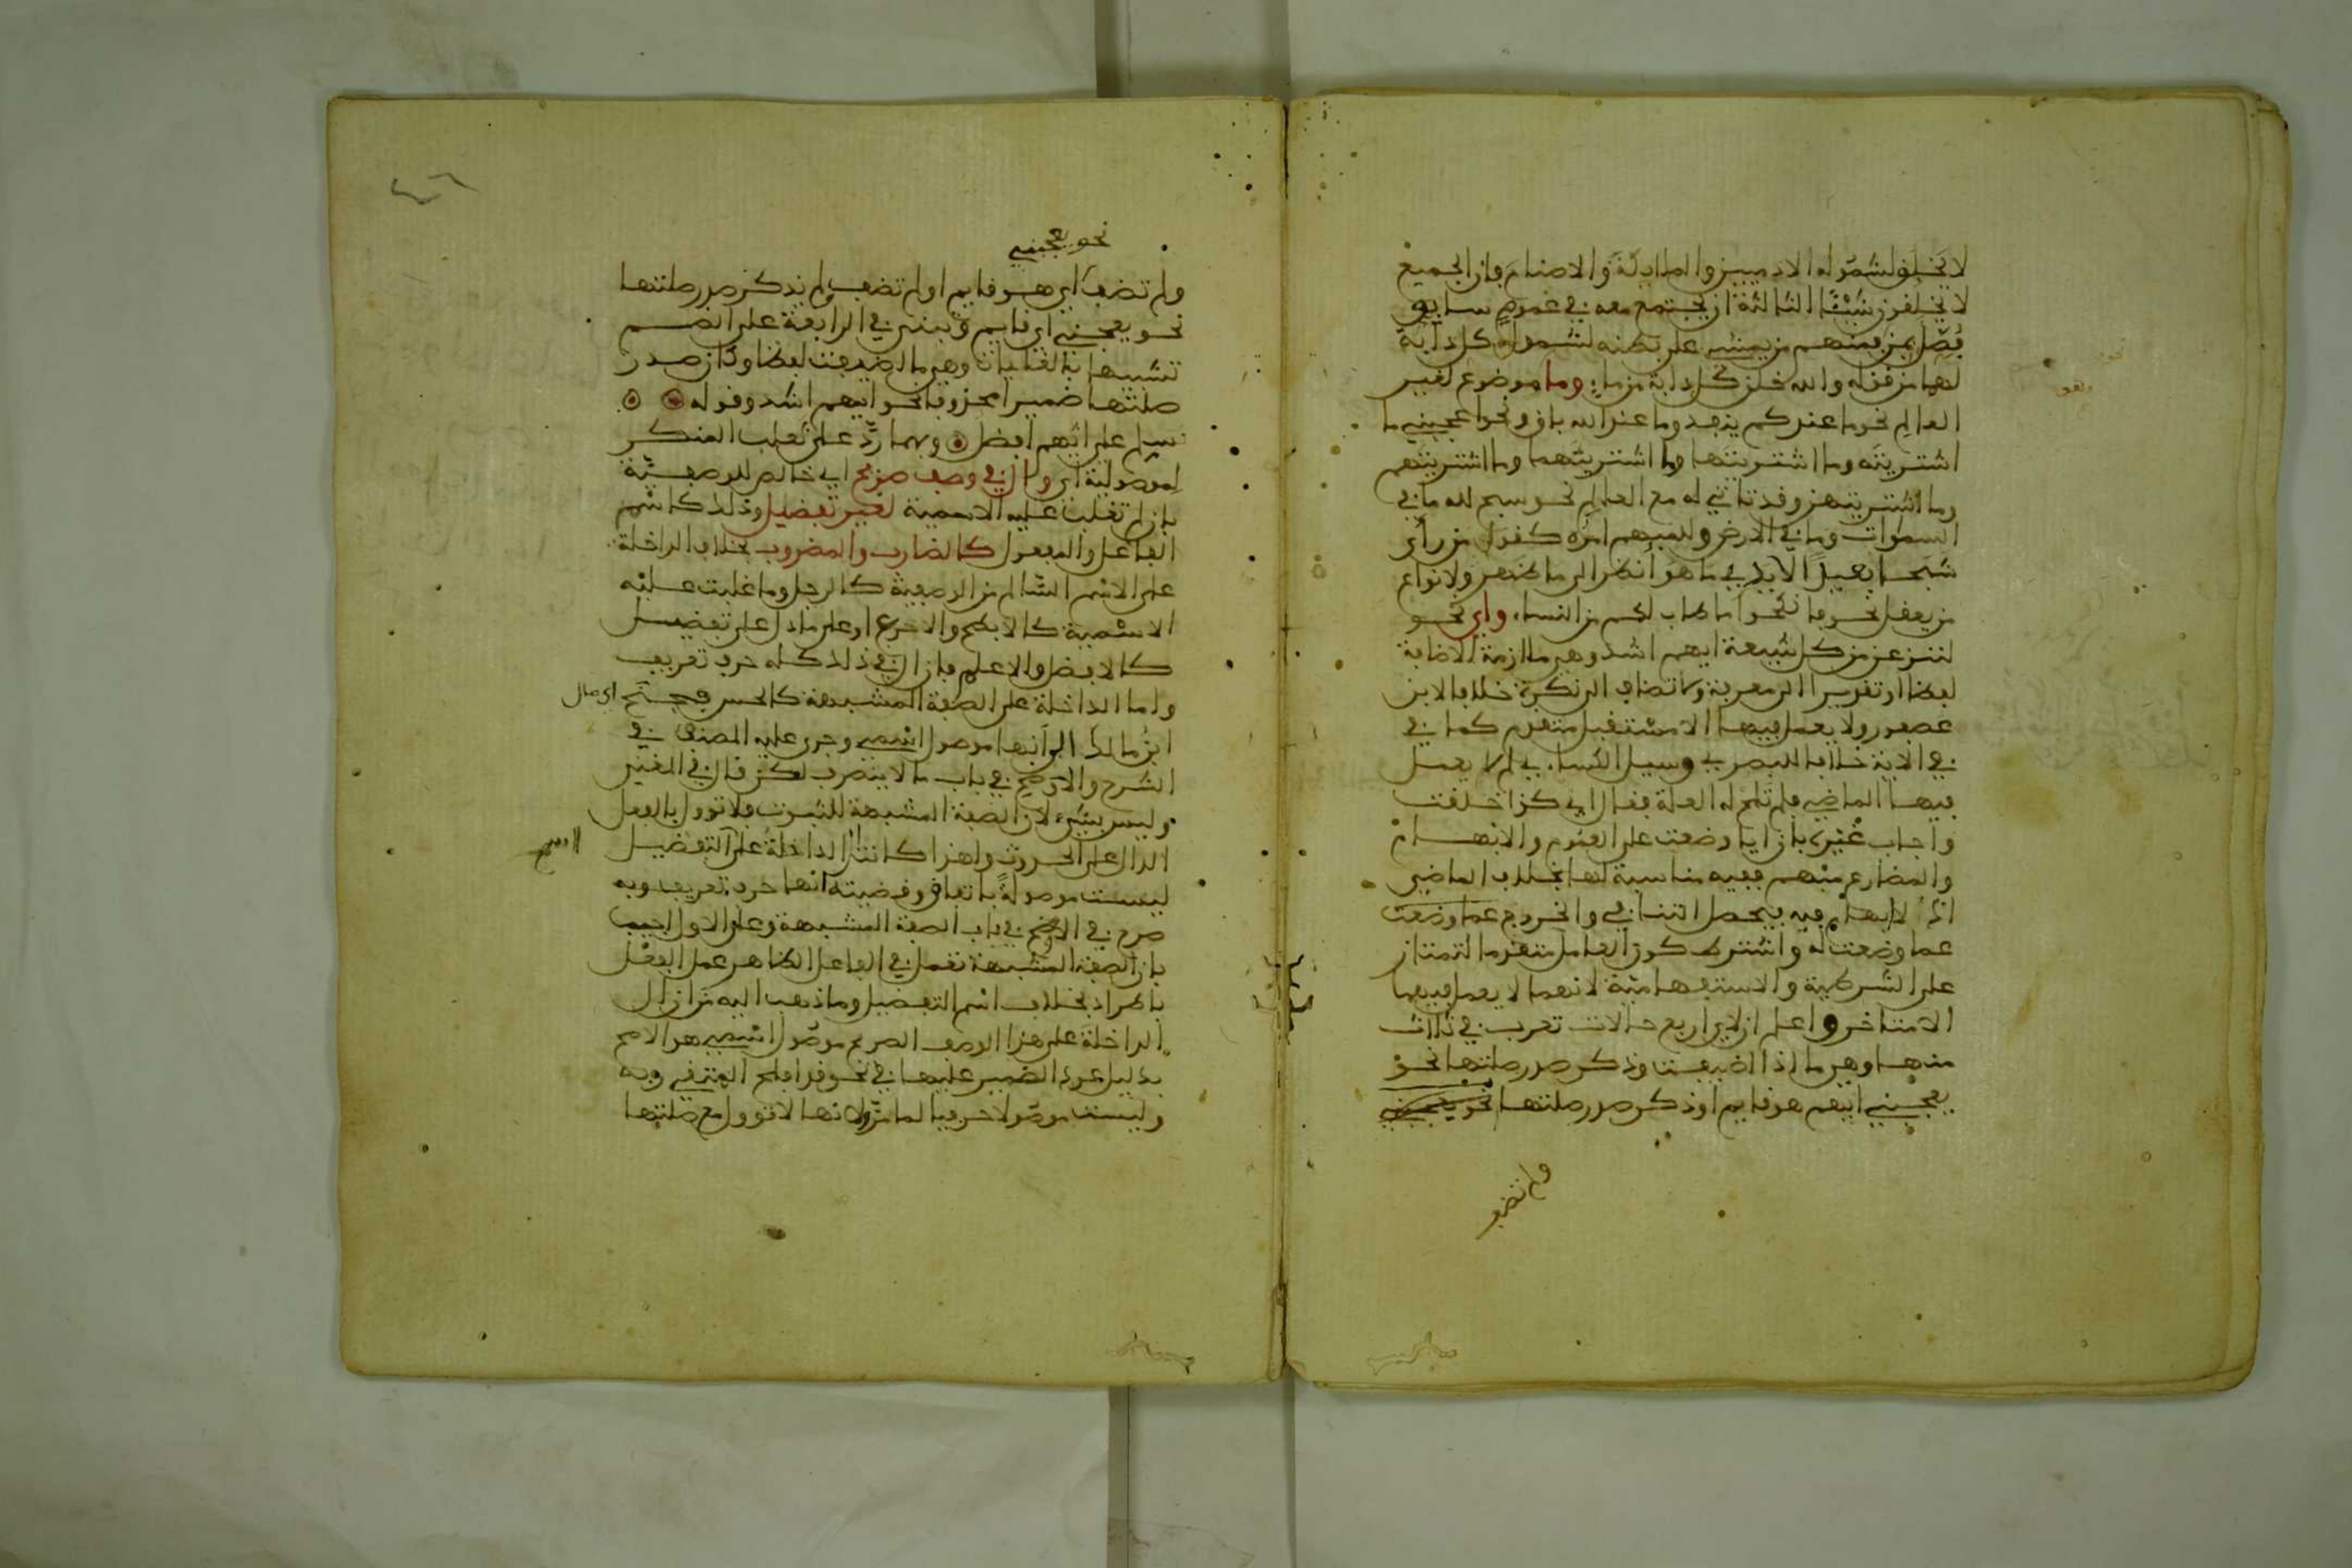 لا يخلق لشموله الادميين والملايكة والاصنام فإن الجميع
لا يخلقون شيئا الثالثة ان يجتمع معه في عموم سابق
فصل بمن فمنهم من يمشي على بطنه لشمول كل دآبة
لهما من قوله والله خلق كل دابة من ماء وما موضوع لغير
العالم نحو ما عندكم ينفد وما عند الله باق ونحو اعجبني ما
اشتريته وما اشتريتها وما اشتريتهما وما اشتريتهم
وما اشتريتهن وقد تاتي له مع العالم نحو سبح لله ما في
السموات وما في الارض وللمبهم امره كقول من رأى
شبحا بعيدا لا يدري ما هو انظر الى ما ظهر ولانواع
من يعقل نحو فانكحوا ما طاب لكم من النساء واي نحو
لننزعن من كل شيعة ايهم اشد وهي ملازمة الاضافة
لفظا او تقديرا الى معرفة ولا تضاف الى نكرة خلافا لابن
عصفور ولا يعمل فيها الا مستقبل متقدم كما في
في الاية خلافا للبصريين وسيل الكساءي لم لا يعمل
فيها الماضي فلم تلح له العلة فقال اي كذا خلقت
واجاب غيره بان ايا وضعت على العموم والابهام
والمضارع مبهم ففيه مناسبة لها بخلاف الماضي
اذ لا ابهام فيه فيحصل التنافي والخروج عما وضعت
عما وضعت له واشترط كون العامل متقدما لتمتاز
على الشرطية والاستفهامية لانهما لا يعمل فيهما
الا متاخر واعلم ان لاي اربع حالات تعرب في ثلاث
منها وهي ما اذا اضيفت وذكر صدر صلتها نحو
يعجبني ايهم هو قايم او ذكر صدر صلتها نحو يعجبني
ولم تضف
نحو يعجبني
ولم تضف اي هو قايم او لم تضف ولم يذكر صدر صلتها
نحو يعجبني اي قايم وتبنى في الرابعة على الضم
تشبيها بالغايات وهي ما اضيفت لفظا وكان صدر
صلتها ضميرا محذوفا نحو ايهم اشد وقوله
سلم على ايهم افضل وبهما رد على ثعلب المنكر
لموصولية اي وال في وصف صريح اي خالص للوصفية
بان لم تغلب عليه الاسمية لغير تفضيل وذلك كاسم
الفاعل والمفعول كالضارب والمضروب بخلاف الداخلة
على الاسم السالم من الوصفية كالرجل وما غلبت عليه
الاسمية كالابطح والاجرع او على ما دل على تفضيل
كالافضل والاعلم فان ال في ذلك كله حرف تعريف
واما الداخلة على الصفة المشبهة كالحسن فجنح اي مال
ابن مالك الى انها موصول اسمي وجرى عليه المصنف في
الشرح والاوضح في باب ما لا ينصرف لكن قال في المغني
وليس بشيء لان الصفة المشبهة للثبوت فلا توول بالفعل
الدال على الحدوث ولهذا كانت ال الداخلة على التفضيل
اسم
ليست موصولة باتفاق وقضيته انها حرف تعريف وبه
صرح في الاوضح في باب الصفة المشبهة وعلى الاول اجيب
بان الصفة المشبهة تعمل في الفاعل الظاهر عمل الفعل
باطراد بخلاف اسم التفضيل وما ذهب اليه من ان ال
الداخلة على هذا الوصف الصريح موصول اسمي هو الاصح
بدليل عود الضمير عليها في نحو قد افلح المتقي ربه
وليست موصولا حرفيا لما مر ولانها لا توول مع صلتها